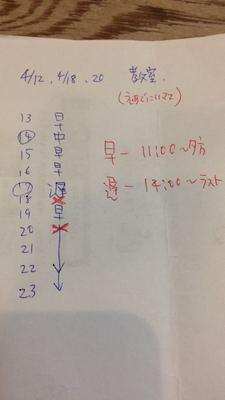 4/12, 4/18, 20 教室.
13 早
14 中
15 早
早 - 11:00〜夕方
16 早
17 遅
遅 - 14:00〜ラスト
18
19 早
20
21
22
23